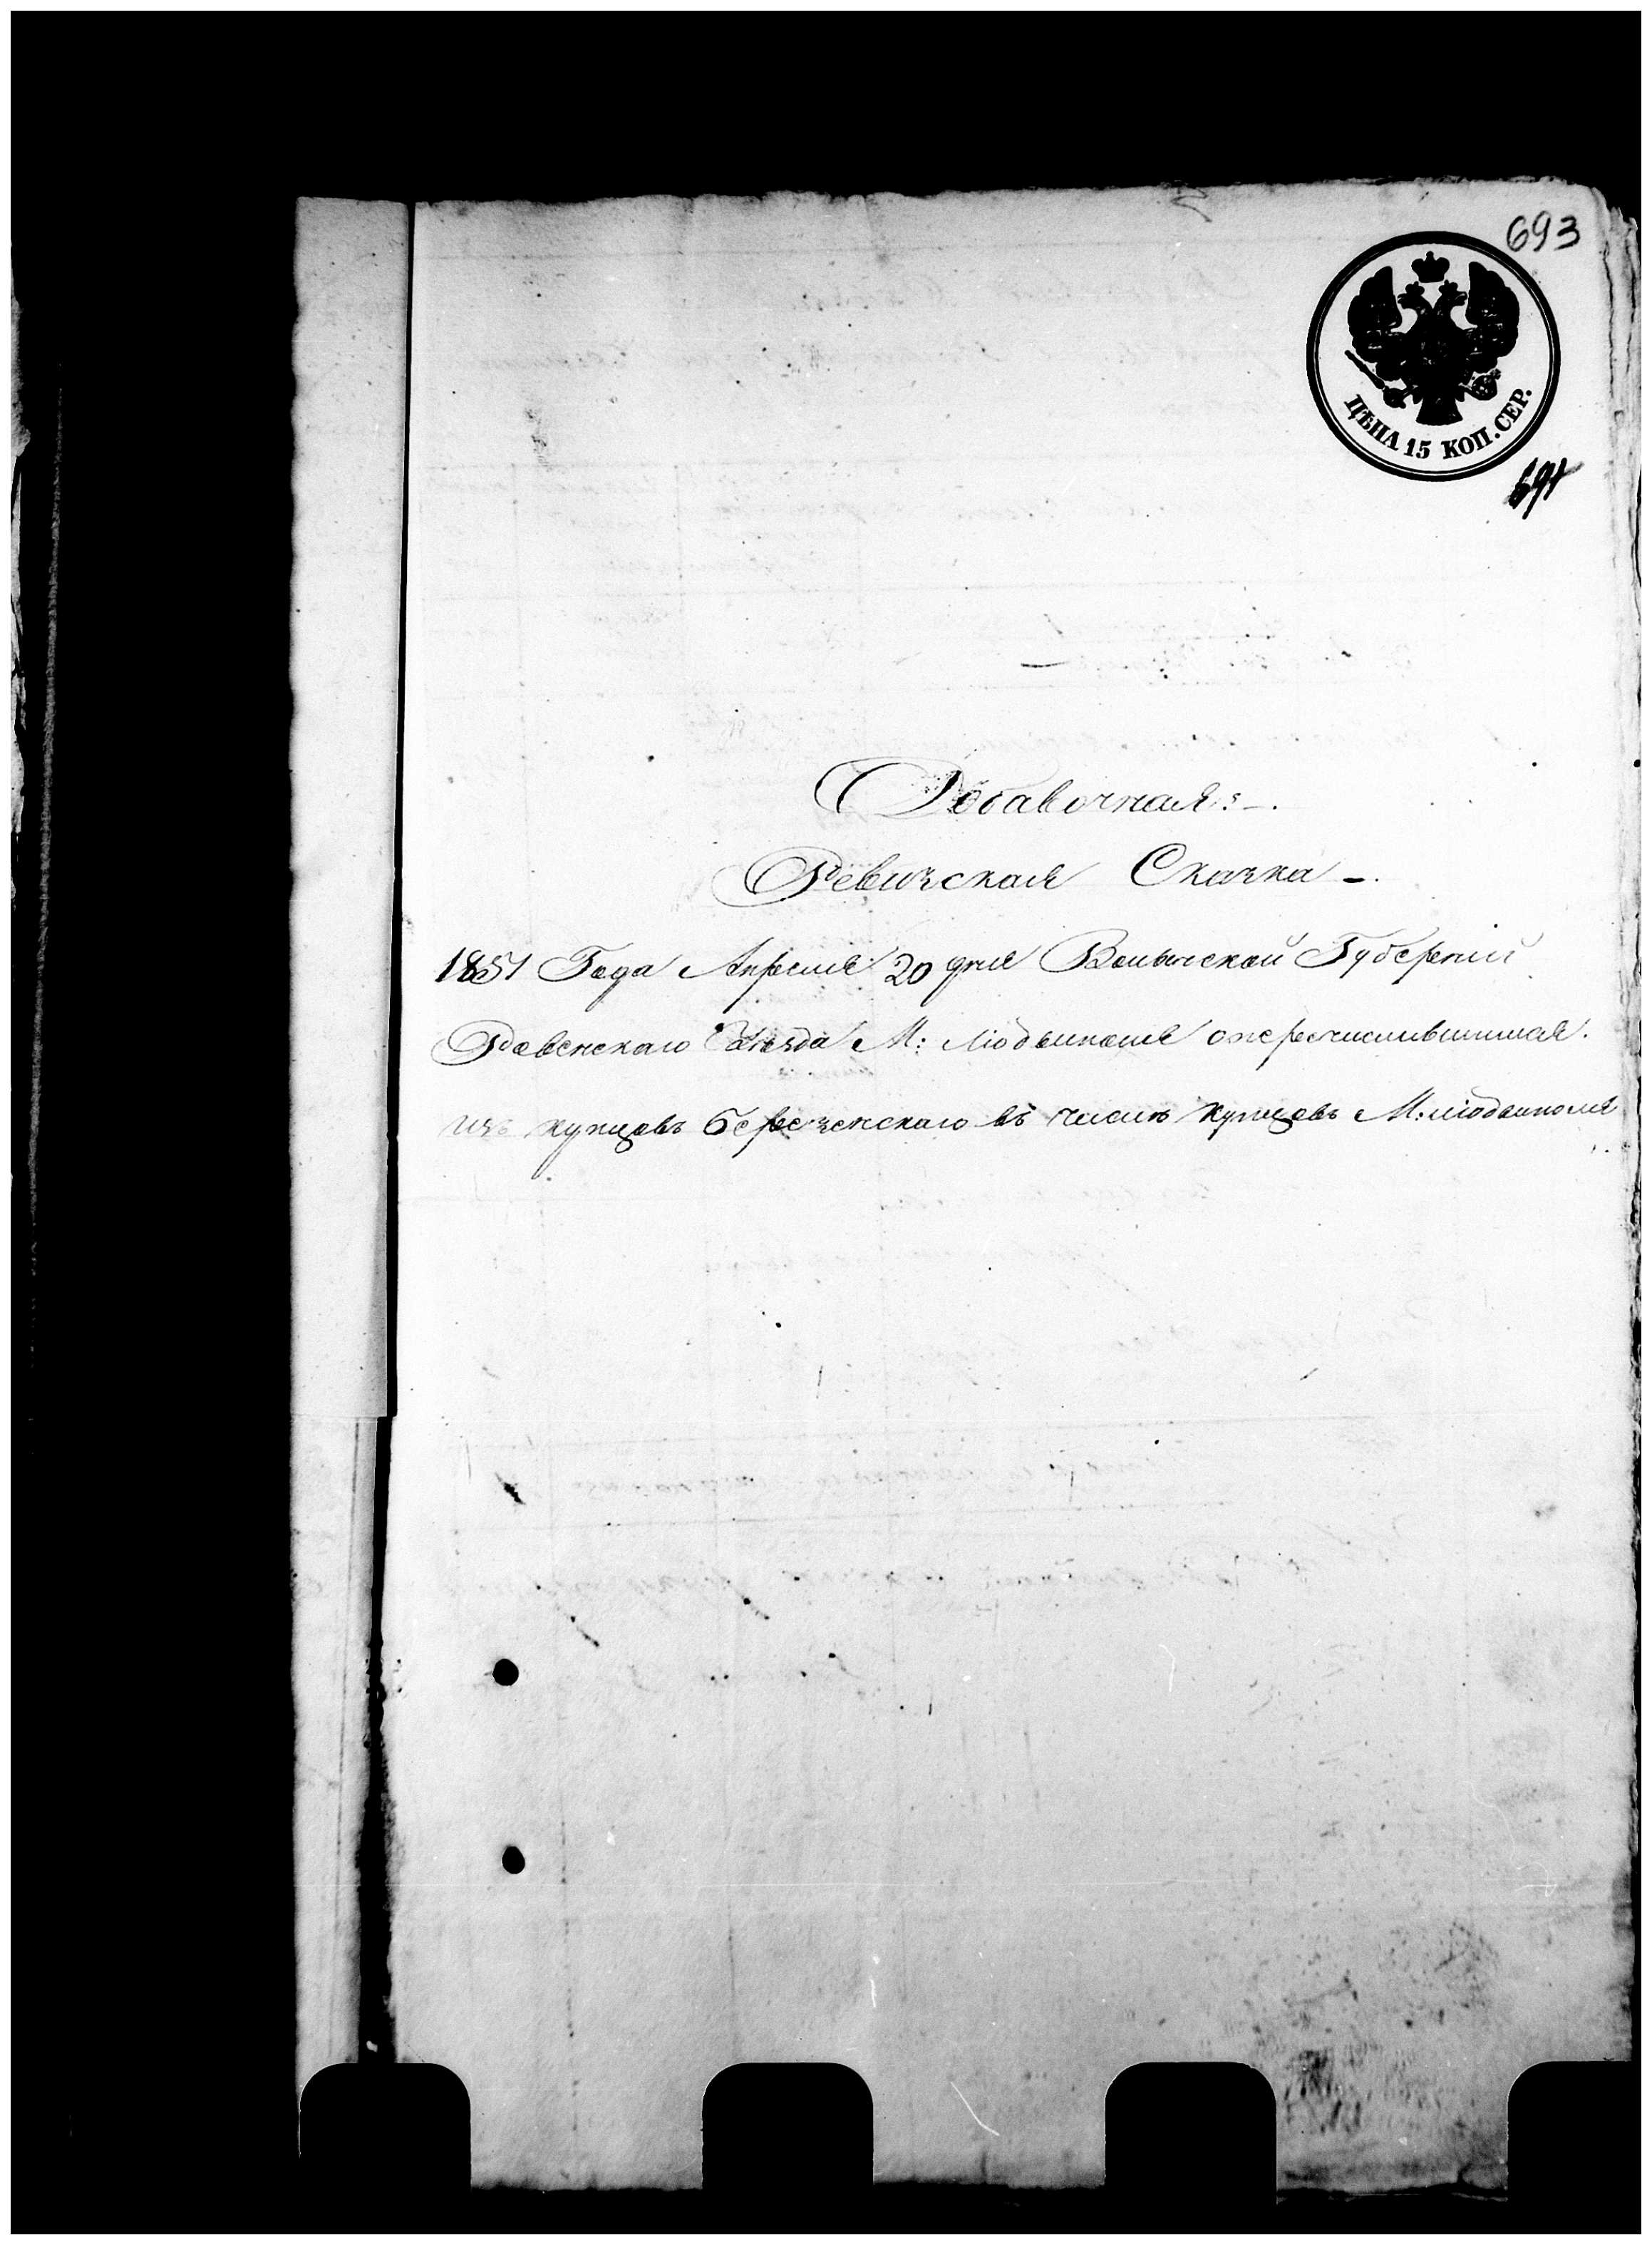 693
ЦѢНА 15 КОП. СЕР.
Добавочная:-.
Ревизская Сказка -.
1851 Года Апреля 20 дня Волынской Губерніи
Ровенскаго Уѣзда М: Людвиполя о перечислившимся.
изъ купцовъ Березенскаго въ число купцовъ М: Людвиполя